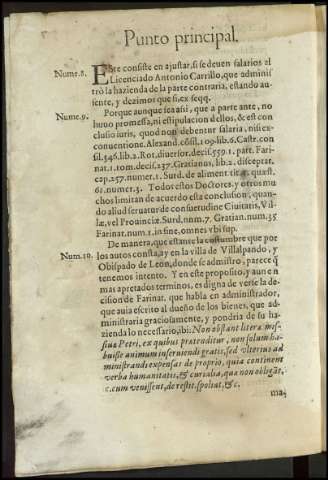 Punto principal.
Nume.8. Este consiste en ajustar, si se deuen salarios al
Licenciado Antonio Carrillo, que adminis
trò la hazienda de la parte contraria, estando au-
sente, y dezimos que si. ex seqq.
Nume.9. Porque aunque sea assi, que a parte ante, no
huuo promessa, ni estipulacion dellos, & est con
clusio iuris, quod non debentur salaria, nisi ex-
conuentione. Alexand. cõsil. 109. lib. 6. Castr. con
sil. 346. lib. 2. Rot. diuersor. decis. 559. 1. part. Fari-
nat. 1. tom. decis. 237. Gratianus, lib. 2. disceptat.
cap. 257. numer. 1. Surd. de aliment. tit. quæst.
61. numer. 3. Todos estos Doctores y otros mu
chos limitan de acuerdo esta conclusion, quan-
do aliud seruatur de consuetudine Ciuitatis, Vil-
læ, vel Prouinciæ. Surd. num. 7. Gratian. num. 35
Farinat. num. 1. in fine, omnes vbi sup.
Num.10. De manera, que estante la costumbre que por
los autos consta, ay en la villa de Villalpando, y
Obispado de Leon, donde se admistro, parece q̃
tenemos intento. Y en este proposito, y aun en
mas apretados terminos, es digna de verse la de-
cision de Farinat. que habla en administrador,
que auia escrito al dueño de los bienes, que ad-
ministraria graciosamente, y pondria de su ha-
zienda lo necessario, ibi: Non obstant literæ mis-
siuæ Petri, ex quibus prætenditur, non solum ha-
buisse animum inseruiendi gratis, sed vlterius ad
ministrandi expensas de proprio, quia continent
verba humanitatis, & curialia, quæ non obligãt,
c. cum venissent, de restit. spoliat. &c.
ma-